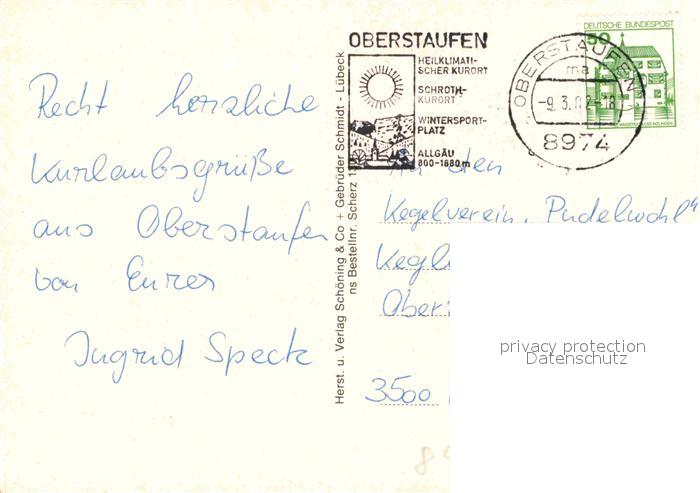 Recht herzliche
Kurlaubsgrüße
aus Oberstaufen
von Eurer
Ingrid Speck
Herst. u. Verlag Schöning & Co + Gebrüder Schmidt - Lübeck
ns Bestellnr. Scherz
OBERSTAUFEN
HEILKLIMATI-
SCHER KURORT
SCHROTH-
KURORT
WINTERSPORT-
PLATZ
ALLGÄU
800-1880 m
OBERSTAUFEN
ma
-9.3.82-18
8974
DEUTSCHE BUNDESPOST
50
An den
Kegelverein „Pudelwohl"
Kegl
Ober
3500
privacy protection
Datenschutz